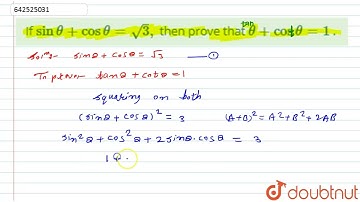 642525031
If sin θ + cos θ = √3, then prove that tan θ + cot θ = 1.
Solⁿ:- sinθ + cosθ = √3 —— ①
To prove tanθ + cotθ = 1
squaring on both
(sinθ + cosθ)² = 3 (A+B)² = A² + B² + 2AB
sin²θ + cos²θ + 2 sinθ. cosθ = 3
1
doubtnut